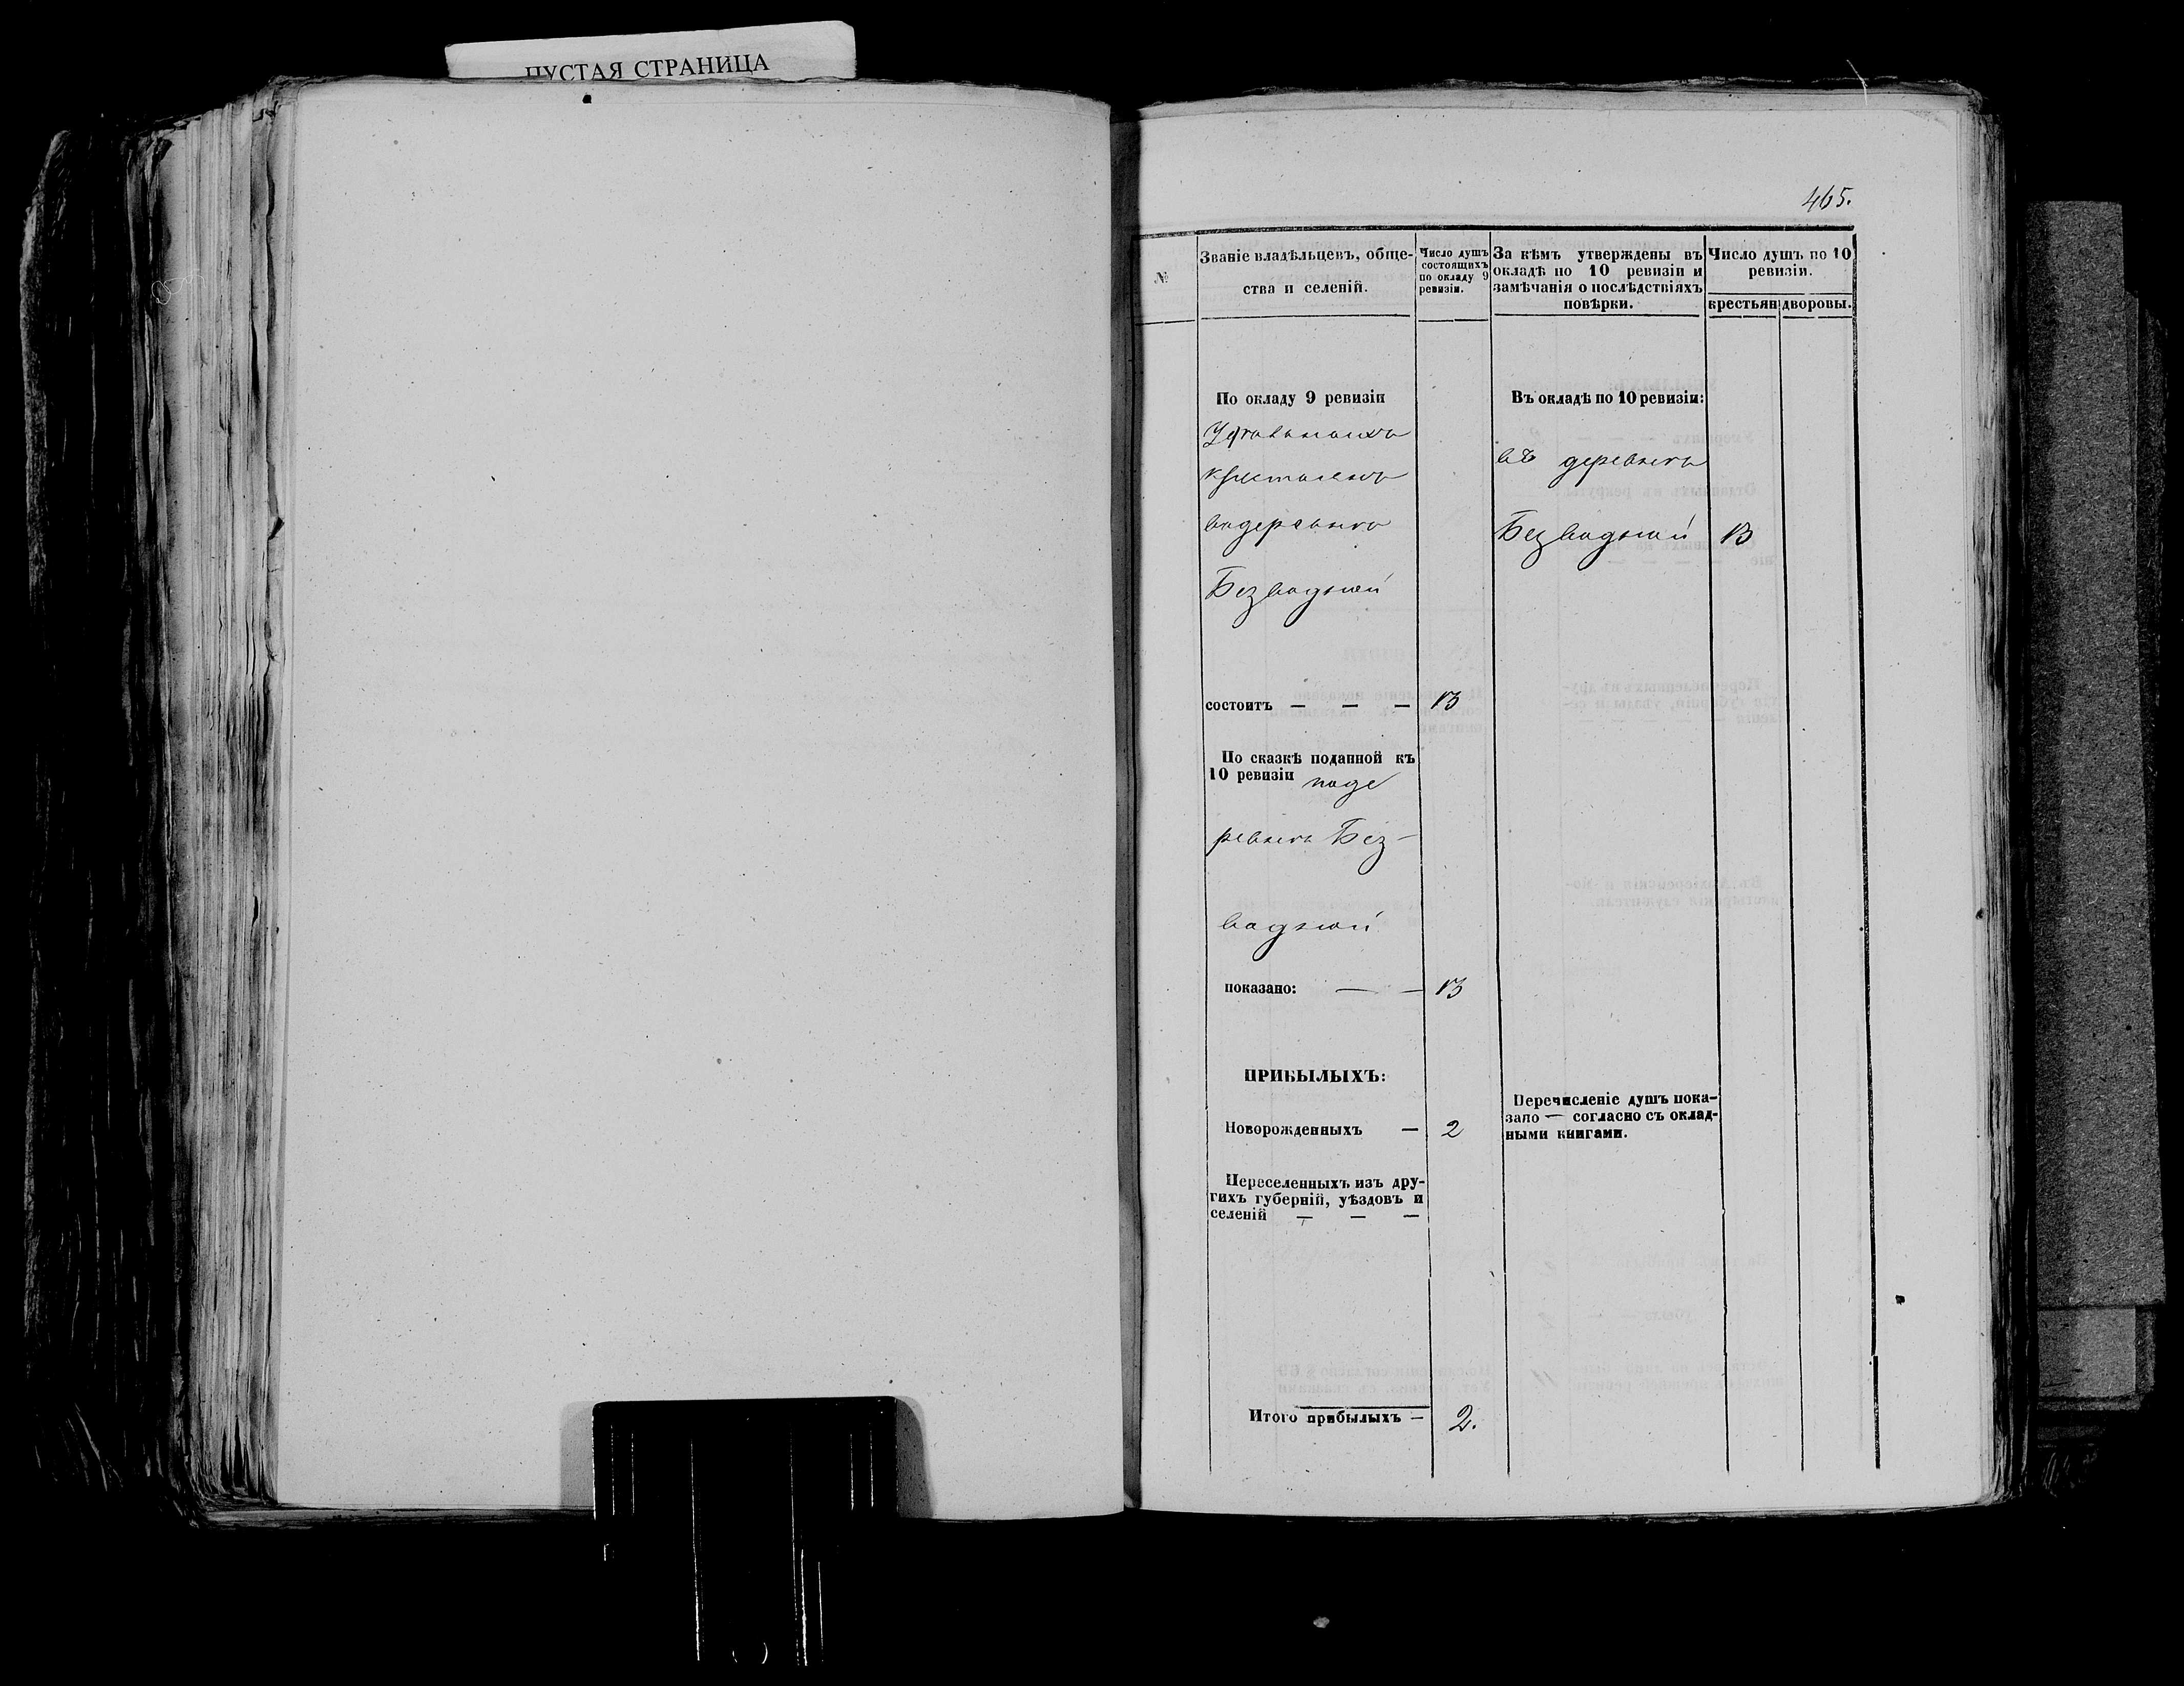 ПУСТАЯ СТРАНИЦА
465.
№
Званіе владѣльцевъ, обще-
ства и селеній.
Число душъ
состоящихъ
по окладу 9
ревизіи.
За кѣмъ утверждены въ
окладѣ по 10 ревизіи и
замѣчанія о послѣдствіяхъ
повѣрки.
Число душъ по 10
ревизіи.
крестьян дворовы.
По окладу 9 ревизіи
крестьянъ
въ деревнѣ
Безводной
состоитъ — — — 13
По сказкѣ поданной къ
10 ревизіи по де
ревнѣ Без-
водной
показано: — — 13
ПРИБЫЛЫХЪ:
Новорожденныхъ — 2
Переселенныхъ изъ дру-
гихъ губерній, уѣздовъ и
селеній — — —
Итого прибылыхъ — 2.
Въ окладѣ по 10 ревизіи:
въ деревнѣ
Безводной 13
Перечисленіе душъ пока-
зано — согласно съ оклад-
ными книгами.